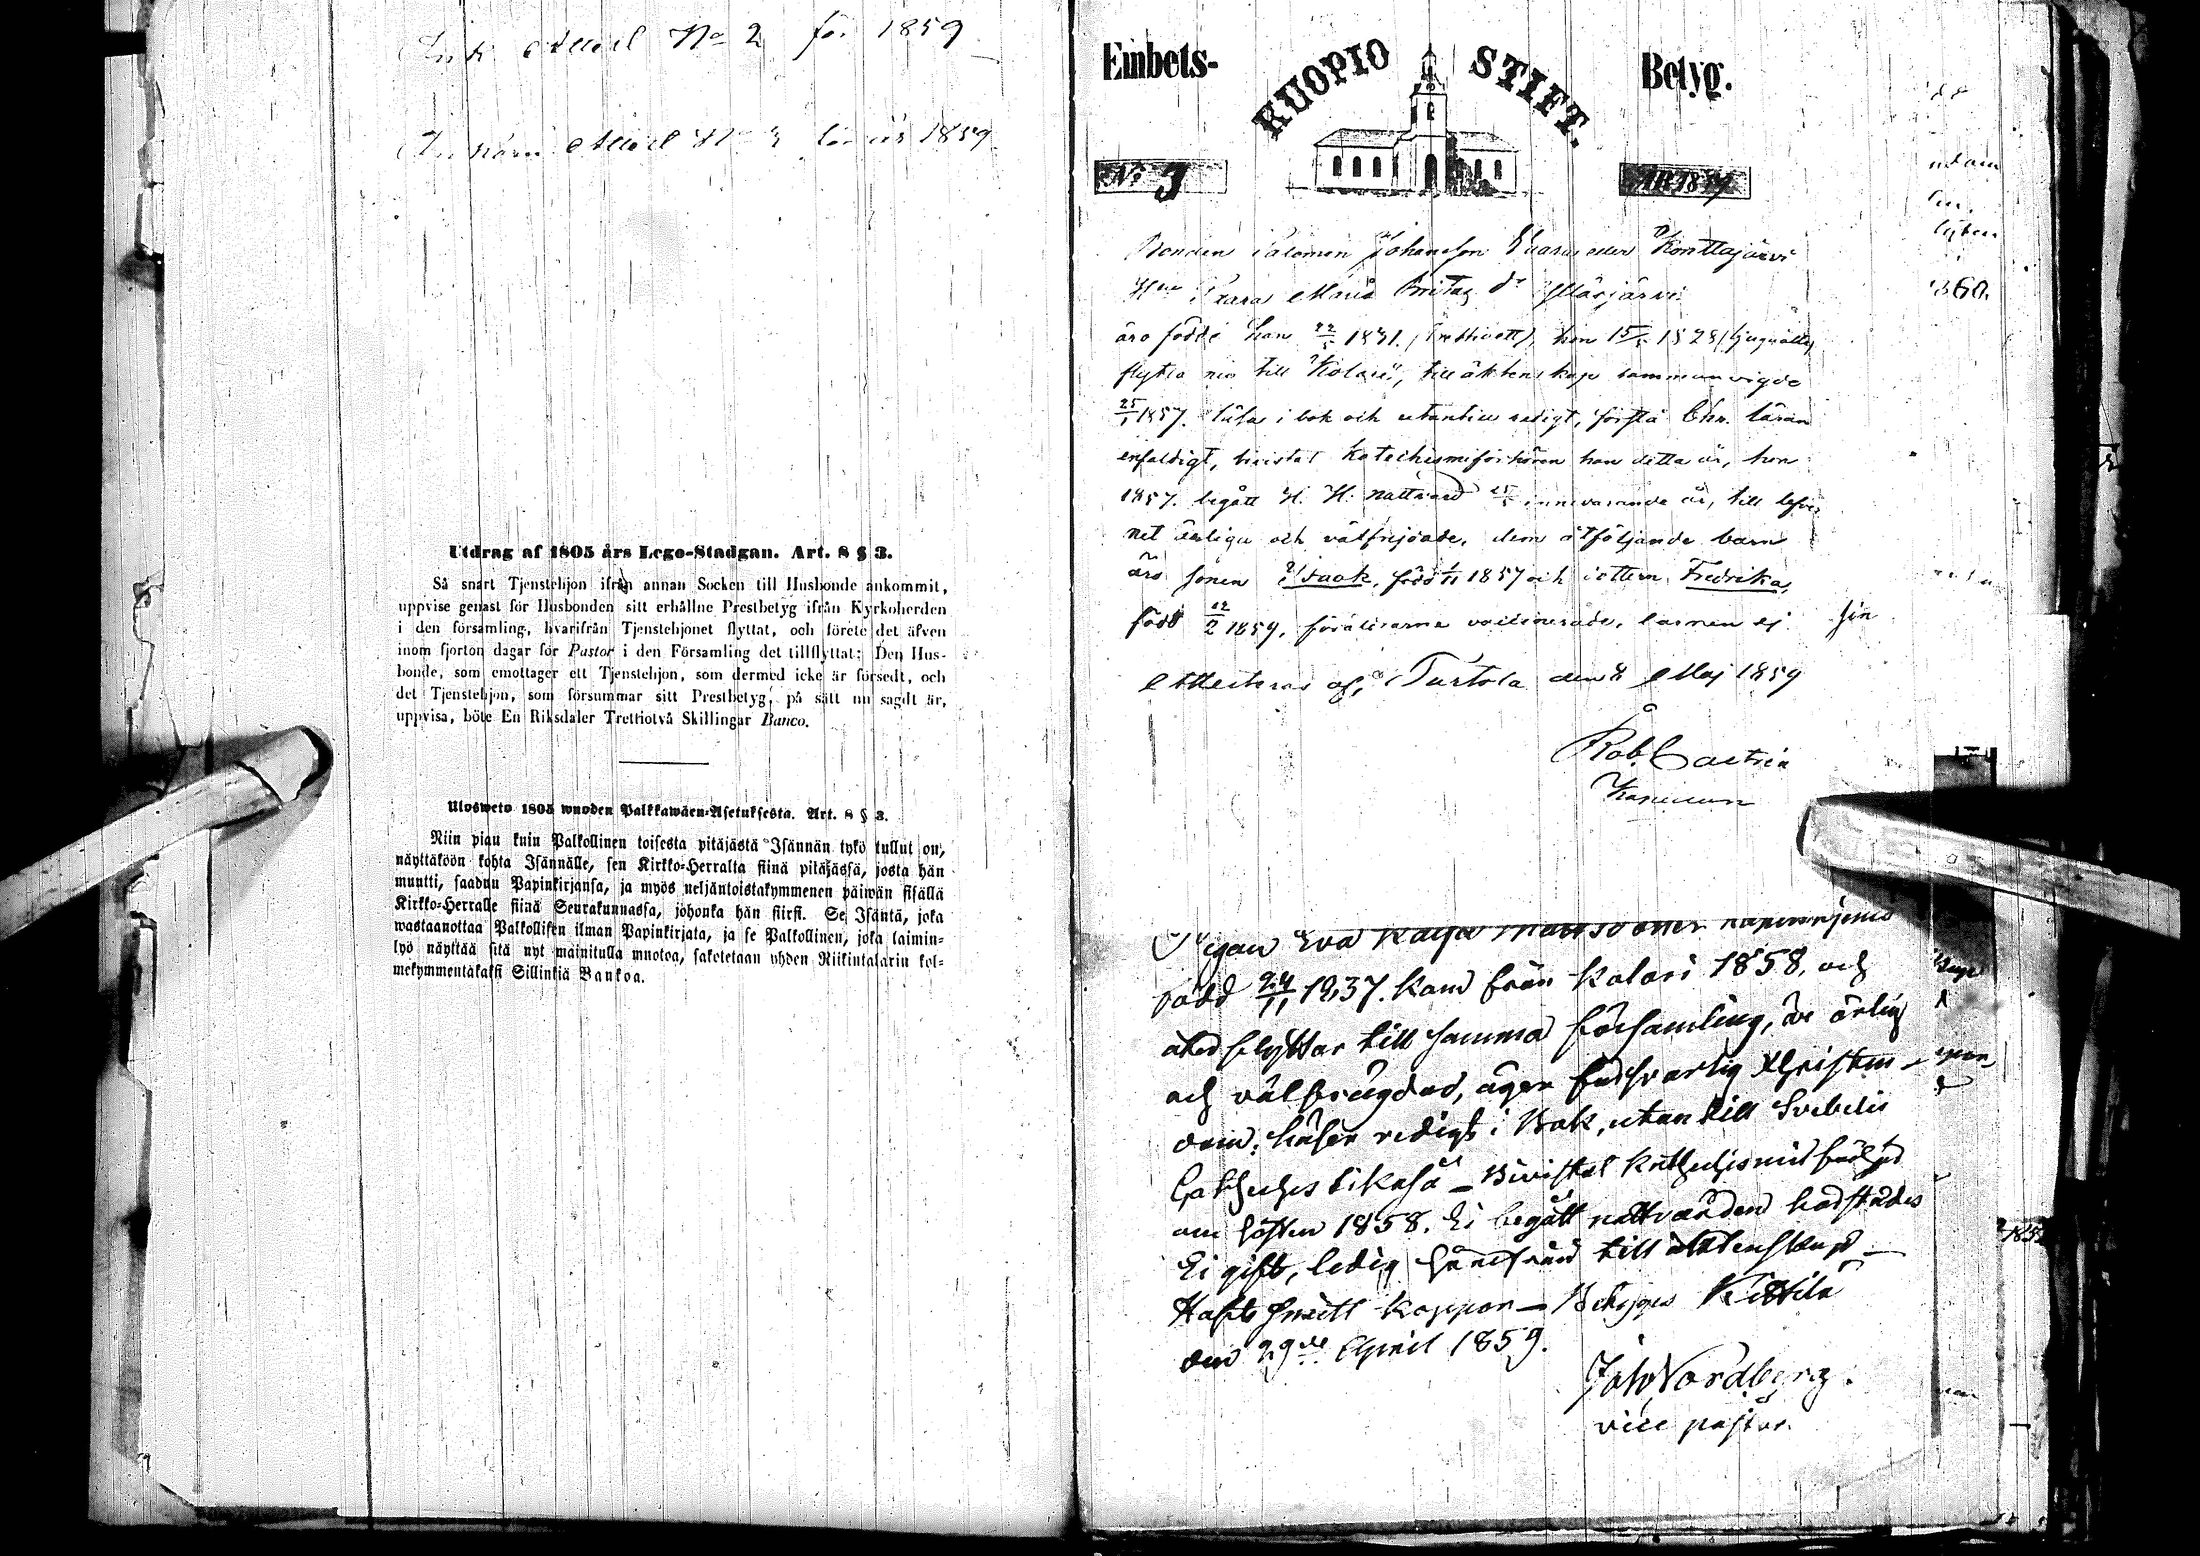 No 2 för 1859
1859
Utdrag af 1805 års Lego-Stadgan. Art. 8 § 3.
Så snart Tjenstehjon ifrån annan Socken till Husbonde ankommit,
uppvise genast för Husbonden sitt erhållne Prestbetyg ifrån Kyrkoherden
i den församling, hvarifrån Tjenstehjonet flyttat, och förete det äfven
inom fjorton dagar för Pastor i den Församling det tillflyttat; Den Hus-
bonde, som emottager ett Tjenstehjon, som dermed icke är försedt, och
det Tjenstehjon, som försummar sitt Prestbetyg, på sätt nu sagdt är,
uppvisa, böte En Riksdaler Trettiotvå Skillingar Banco.
Ulosweto 1805 wuoden Palkkawäen-Asetuksesta. Art. 8 § 3.
Niin pian kuin Palkollinen toisesta pitäjästä Isännän tykö tullut on,
näyttäköön kohta Isännälle, sen Kirkko-Herralta siinä pitäjässä, josta hän
muutti, saadun Papinkirjansa, ja myös neljäntoistakymmenen päiwän sisällä
Kirkko-Herralle siinä Seurakunnassa, johonka hän siirsi. Se Isäntä, joka
wastaanottaa Palkollisen ilman Papinkirjata, ja se Palkollinen, joka laimin-
lyö näyttää sitä nyt mainitulla muotoa, sakotetaan yhden Riikintalarin kol-
mekymmentäkaksi Sillinkiä Bankoa.
Embets- KUOPIO STIFT. Betyg.
No 3 ÅR 1859
Bonden Salomon Johansson Konttajärvi
Maria Brita Ylläsjärvi
äro födde han 22/5 1831 (trettioett), hon 15 1828 (tjuguåtta)
flytta nu till Kolari, till äktenskap sammanvigde
25/1 1857. läsa i bok och utantill redigt, förstå Chr. läran
enfaldigt, bivistat Katechismiförhören han detta år, hon
1857. begått H. H. nattvard innevarande år, till lefver
net ärliga och välfrejdade, dem åtföljande barn
äro sonen Isaak, född 1857 och dottern Fredrika,
född 22/2 1859, föräldrarna vaccinerade, barnen ej
Attesteras af, Turtola den 8 Maj 1859
Rob. Castrén
Kapellan
Pigan Eva Kajsa
född 24/11 1837. kom från Kolari 1858, och
återflyttar till samma församling, är ärlig
och välfrägdad, äger försvarlig Christen-
dom; läser redigt i Bok, utan till Svebelii
Cathechis likaså – Bivistat Kathechismiförhör
om hösten 1858. Ei begått nattvarden härstädes
Ei gift, ledig hänseende till äktenskap –
Haft smått koppor – Betygas Kittilä
den 29de April 1859.
Joh Nordberg.
vice pastor.
1860.